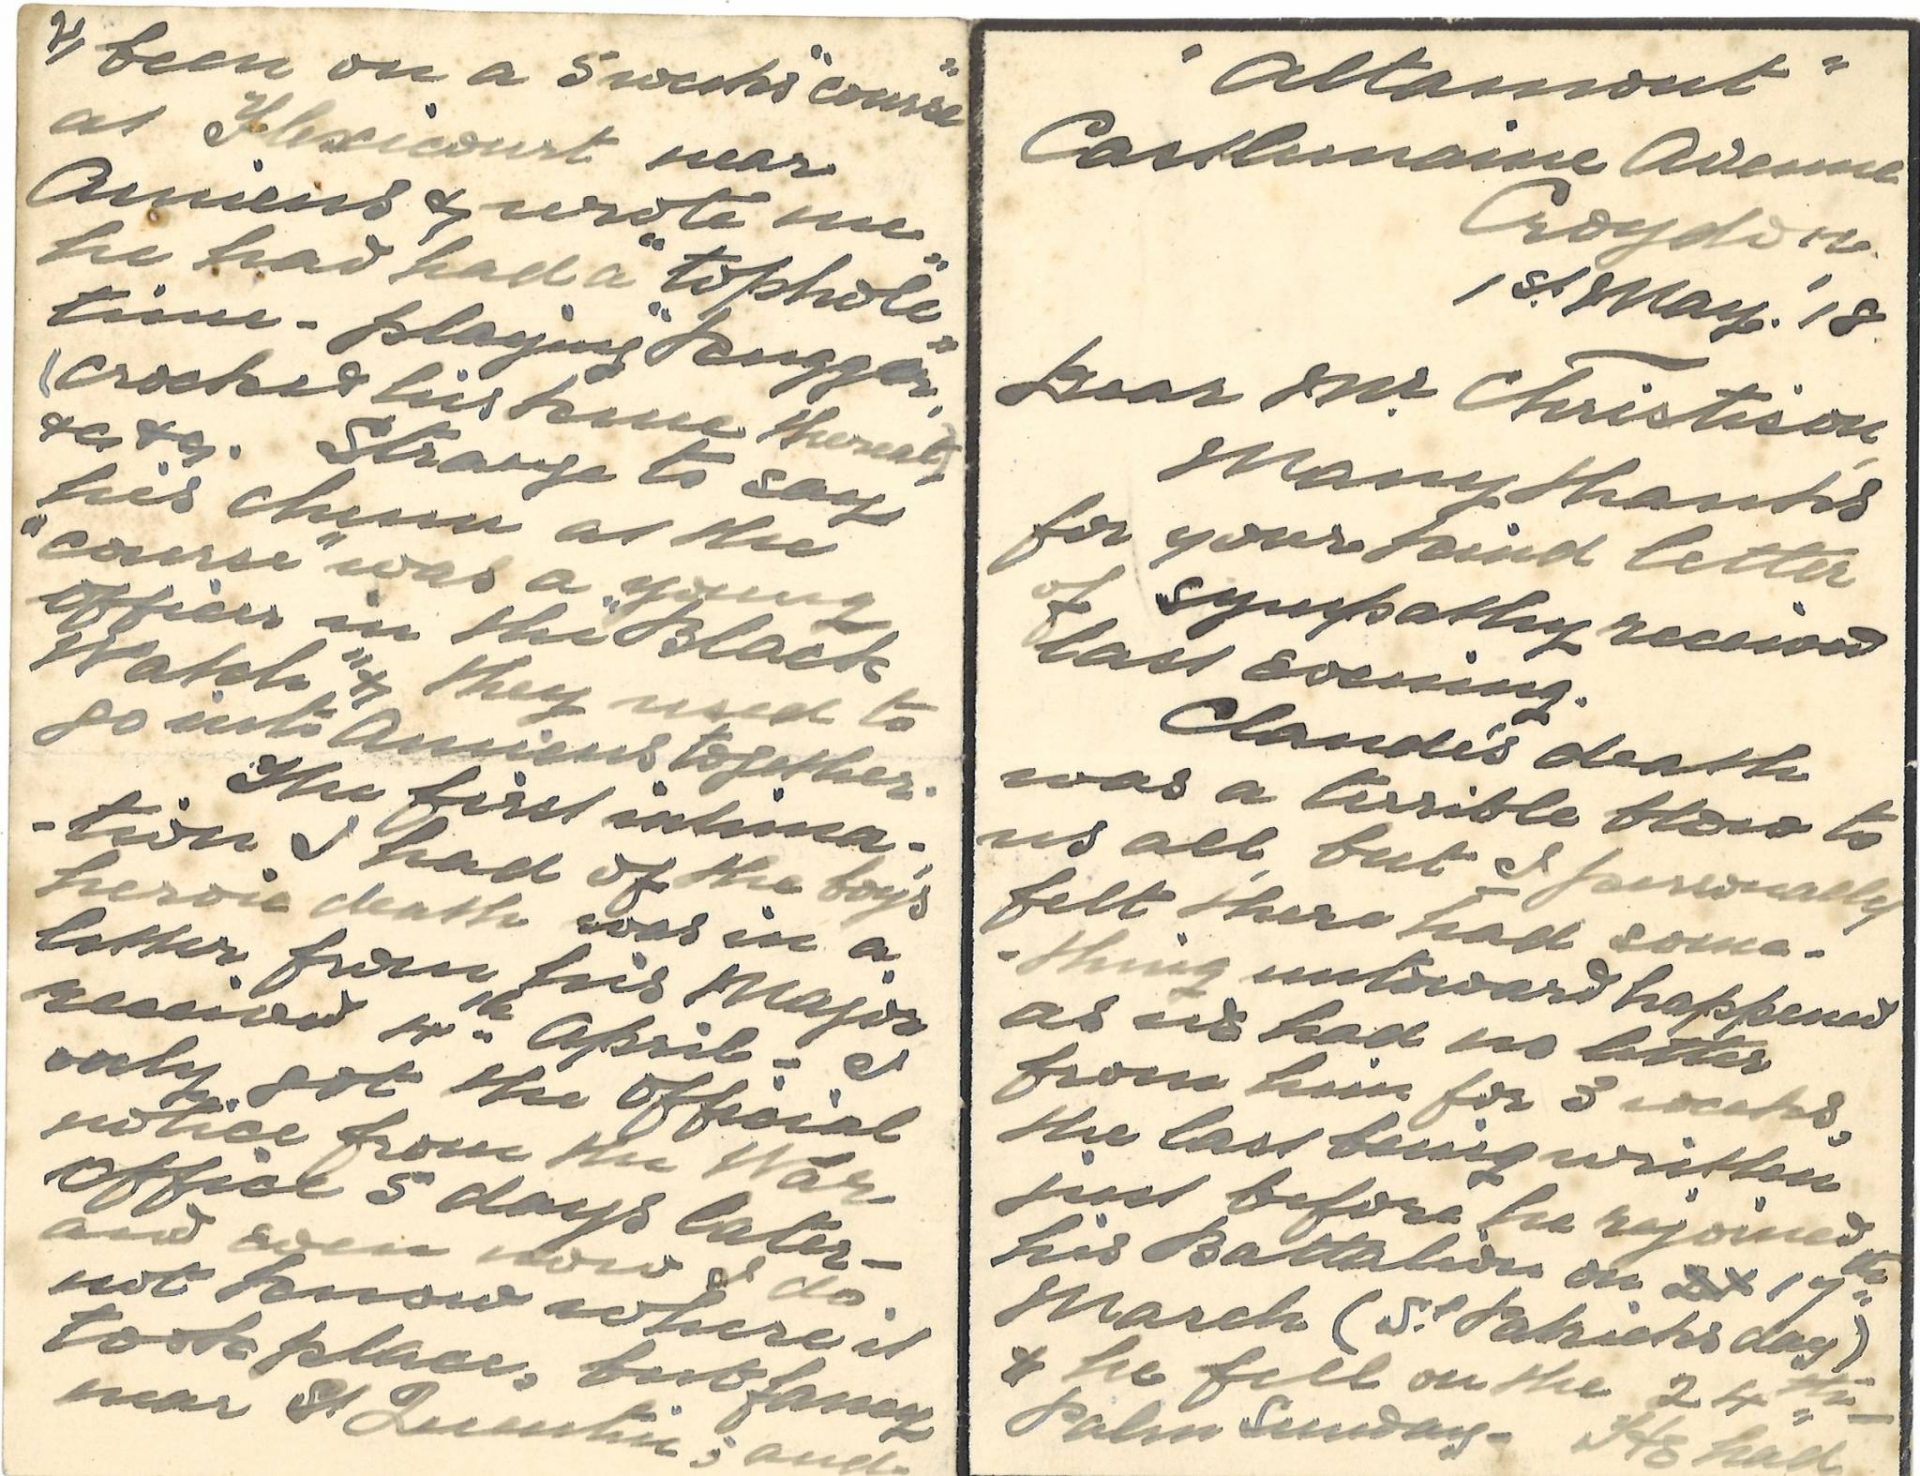 "Altamont"
Castlemaine Avenue
Croydon.
1st May. '18.
Dear Mr Christison,
Many thanks
for your kind letter
of sympathy received
last evening.
Claude's death
was a terrible blow to
us all, but I personally
felt there had some-
-thing untoward happened
as we had no letter
from him for 3 weeks,
the last being written
just before he rejoined
his Battalion on 17th
March (St. Patricks day)
& he fell on the 24th -
Palm Sunday - He had
2/ been on a 5 weeks "course"
at Flexicourt near
Amiens & wrote me
he had had a "tophole"
time - playing "rugger"
(crocked his knee thereat)
&c &c. Strange to say
his chum at the
"course" was a young
officer in the "Black
Watch" & they used to
go into Amiens together.
The first intima-
-tion I had of the boy's
heroic death was in a
letter from his Major
received 4th April - I
only got the official
notice from the War
Office 5 days later -
and even now I do
not know where it
took place, but fancy
near St Quentin; and